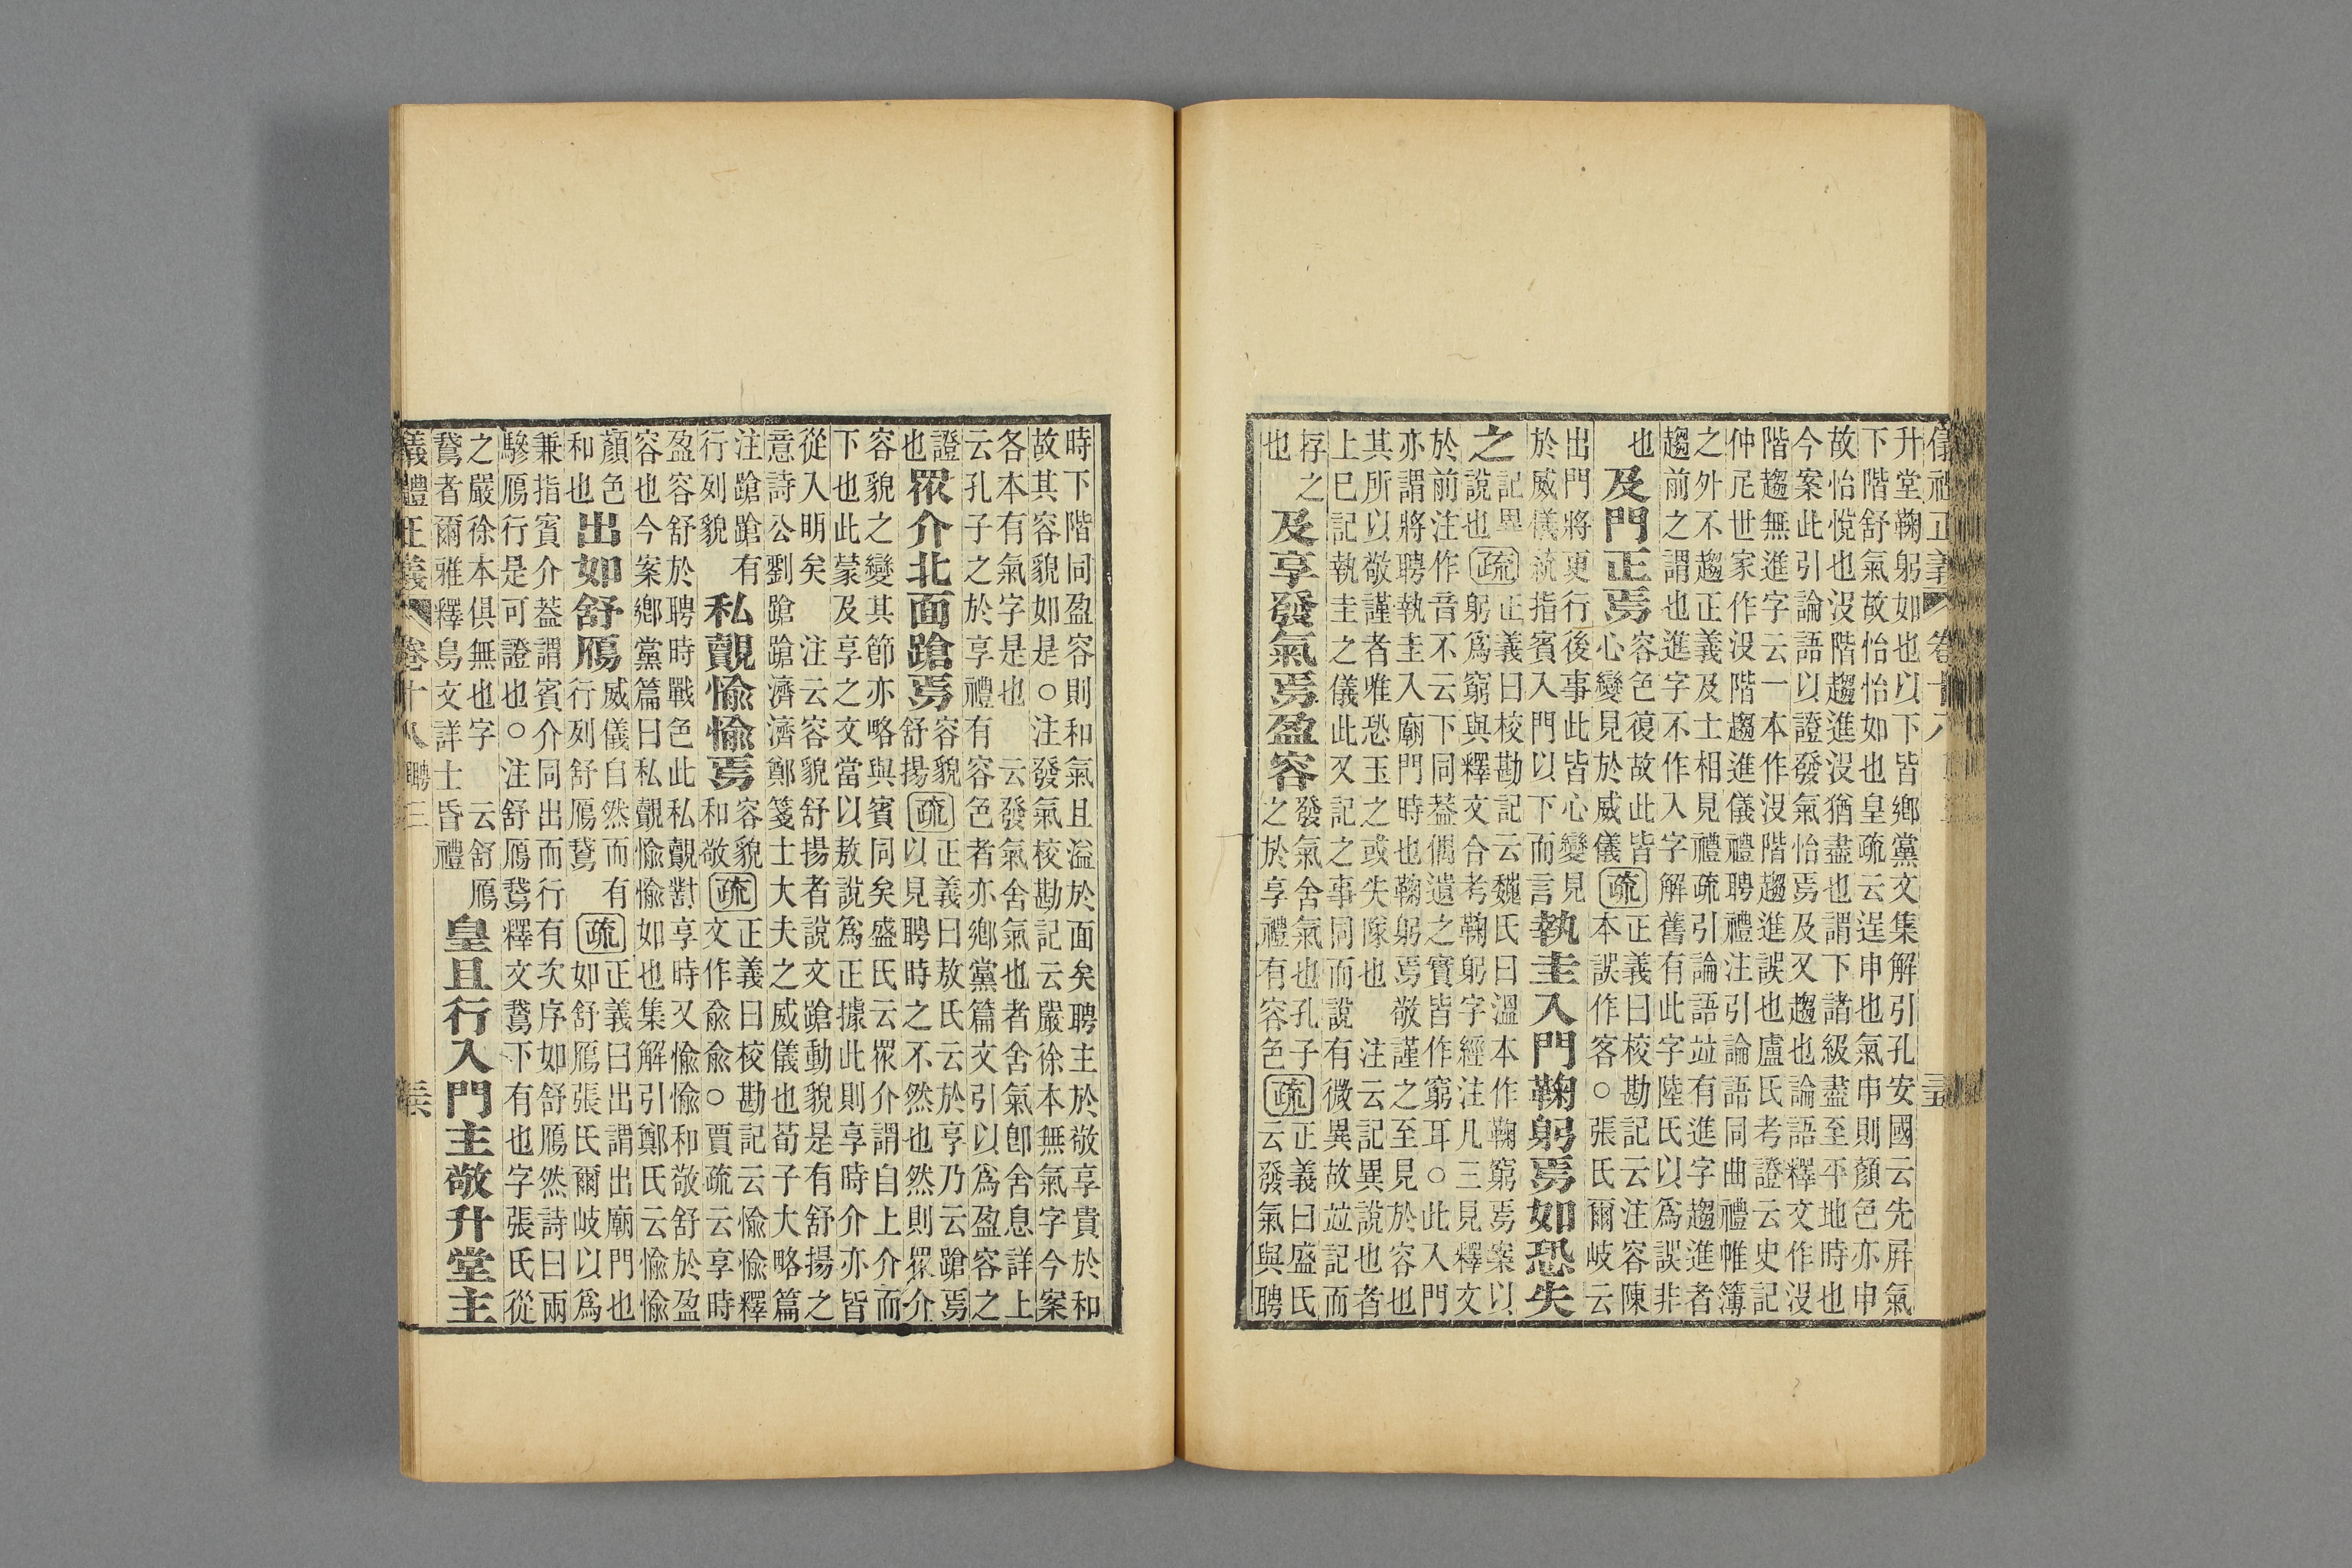 儀禮正義 卷十八 三五
升堂鞠躬如也以下皆鄉黨文集解引孔安國云先屏氣
下階舒氣故怡怡如也皇疏云逞申也氣申則顏色亦申
故怡悅也沒階趨進沒猶盡也謂下諸級盡至平地時也
今案此引論語以證發氣怡焉及又趨也論語釋文作沒
階趨無進字云一本作沒階趨進誤也盧氏考證云史記
仲尼世家作没階趨進儀禮聘禮注引論語同曲禮帷簿
之外不趨正義及士相見禮疏引論語竝有進字趨進者
趨前之謂也進字不作入字解舊有此字陸氏以爲誤非
也
及門正焉
容色復故此皆
心變見於威儀
疏
正義曰校勘記云注容陳
本誤作客○張氏爾岐云
出門將更行後事此皆心變見
於威儀統指賓入門以下而言
執圭入門鞠躬焉如恐失
之
記異
說也
疏
正義曰校勘記云魏氏曰溫本作鞠窮焉案以
躬爲窮與釋文合考鞠躬字經注凡三見釋文
於前注作音不云下同葢偶遺之實皆作窮耳○此入門
亦謂將聘執圭入廟門時也鞠躬焉敬謹之至見於容也
其所以敬謹者雅恐玉之或失隊也 注云記異說也者
上巳記執圭之儀此又記之事同而說有微異故竝記而
存之
也
及享發氣焉盈容
發氣舍氣也孔子
之於享禮有容色
疏
正義曰盛氏
云發氣與聘
時下階同盈容則和氣且溢於面矣聘主於敬享貴於和
故其容貌如是○注發氣校勘記云嚴徐本無氣字今案
各本有氣字是也 云發氣舍氣也者舍氣卽舍息詳上
云孔子之於享禮有容色者亦鄉黨篇文引以爲盈容之
證
也
眾介北面蹌焉
容貌
舒揚
疏
正義曰敖氏云於享乃云蹌焉
以見聘時之不然也然則眾介
容貌之變其節亦略與賓同矣盛氏云眾介謂自上介而
下也此蒙及享之文當以敖說爲正據此則享時介亦皆
從入明矣 注云容貌舒揚者說文蹌動貌是有舒揚之
意詩公劉蹌蹌濟濟鄭箋士大夫之威儀也荀子大略篇
注蹌蹌有
行列貌
私覿愉愉焉
容貌
和敬
疏
正義曰校勘記云愉愉釋
文作兪兪○賈疏云享時
盈容舒於聘時戰色此私覿對享時又愉愉和敬舒於盈
容也今案鄉黨篇曰私覿愉愉如也集解引鄭氏云愉愉
顏色
和也
出如舒鴈
威儀自然而有
行列舒鴈鵞
疏
正義曰出謂出廟門也
如舒鴈張氏爾岐以爲
兼指賓介葢謂賓介同出而行有次序如舒鴈然詩曰兩
驂鴈行是可證也○注舒鴈鵞釋文鵞下有也字張氏從
之嚴徐本俱無也字 云舒鴈
鵞者爾雅釋鳥文詳士昏禮
皇且行入門主敬升堂主
儀禮正義 卷十八 聘三 三六